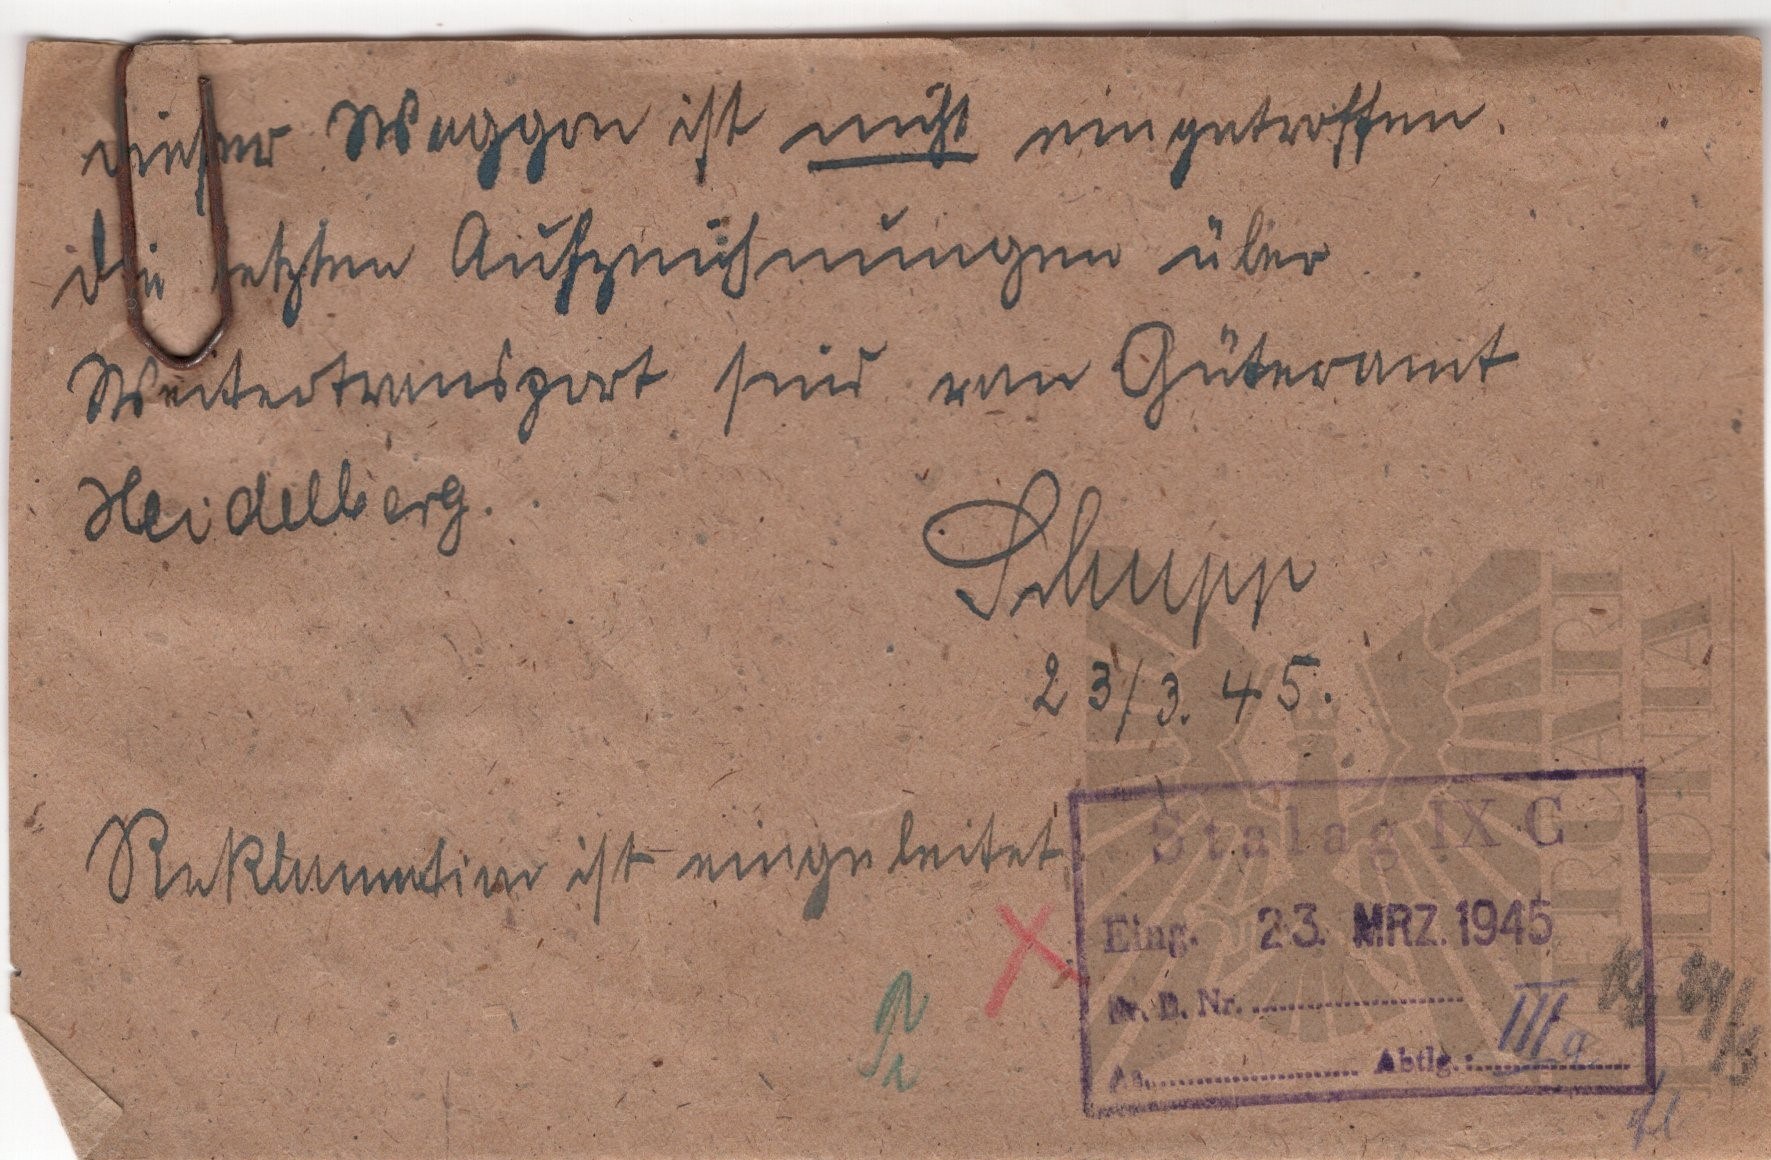 dieser Waggon ist nicht eingetroffen.
Die letzten Aufzeichnungen über
Weitertransport sind von Güteramt
Heidelberg.
Schupp
23/3.45.
Reklamation ist eingeleitet.
Stalag IX C
Eing. 23. MRZ. 1945
Br. B. Nr.
An. Abtlg.: IIIa